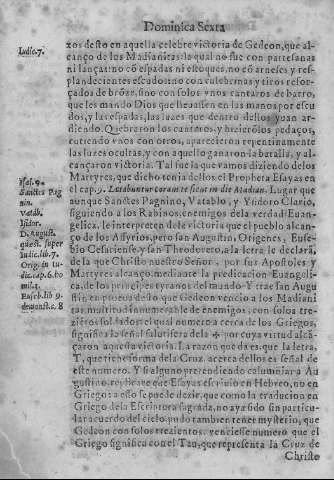 Dominica Sexta
Iudic.7.
xos desto en aquella celebre victoria de Gedeon, que al-
canço de los Madianitas: la qual no fue con partesanas
ni lanças: no có espadas ni estoques, no có arneses y res-
plandecientes escudos: no con culebrinas y tiros refor-
çados de bróze, sino con solos vnos cantaros de barro,
que les mando Dios que lleuassen en las manos por escu-
dos, y las espadas, las luzes que dentro dellos yuan ar-
diendo. Quebraron los cantaros, y hizieròlos pedaços,
cutiendo vnos con otros, aparecieron repentinamente
las luzes ocultas, y con aquello ganaron la batalla, y al-
cançaron victoria. Tal fue la que vamos diziendo delos
Martyres, que dicho tenia dellos el Propheta Esayas en
el cap. 9. Lætabuntur coram te sicut in die Madian. Lugar que
aunque Sanctes Pagnino, Vatablo, y Ysidoro Clario,
siguiendo a los Rabinos, enemigos dela verdad Euan-
gelica, le interpreten dela victoria que el pueblo alcan-
ço de los Assyrios, pero san Augustin, Origenes, Eu-
sebio Cesariense y san Theodoreto, a la letra le declarã,
de la que Christo nuestro Señor, por sus Apostoles y
Martyres alcanço mediante la predicacion Euangeli-
ca, de los principes tyranos del mundo. Y trae san Augu-
stin, en prueua desto que Gedeon vencio a los Madiani
tas multitud innumerable de enemigos, con solos tre-
zientos soldados: el qual numero acerca de los Griegos,
significa la señal salutifera dela ✠ por cuya virtud alcã-
çaron aquesta victoria. La razon que da es, que la letra,
T, que tiene forma dela Cruz, acerca dellos es señal de
este numero. Y si alguno pretendiendo calumniar a Au
gustino, replicare que Esayas escriuio en Hebreo, no en
Griego: a esso se puede dezir, que como la traducion en
Griego dela Escritura sagrada, no aya sido sin particu-
lar acuerdo del cielo, pudo tambien tener mysterio, que
Gedeon con solos trezientos venciesse numero que el
Griego significa con el Tau, que representa la Cruz de
Christo
Psal. 9.
Sanctes Pag
nin.
Vatab.
Isidor.
D. August.
quæst. super
Iudic. lib. 7.
Orig. in Iu-
dic. cap. 6. ho
mil. 1.
Euseb. lib 9.
demonst. c. 8